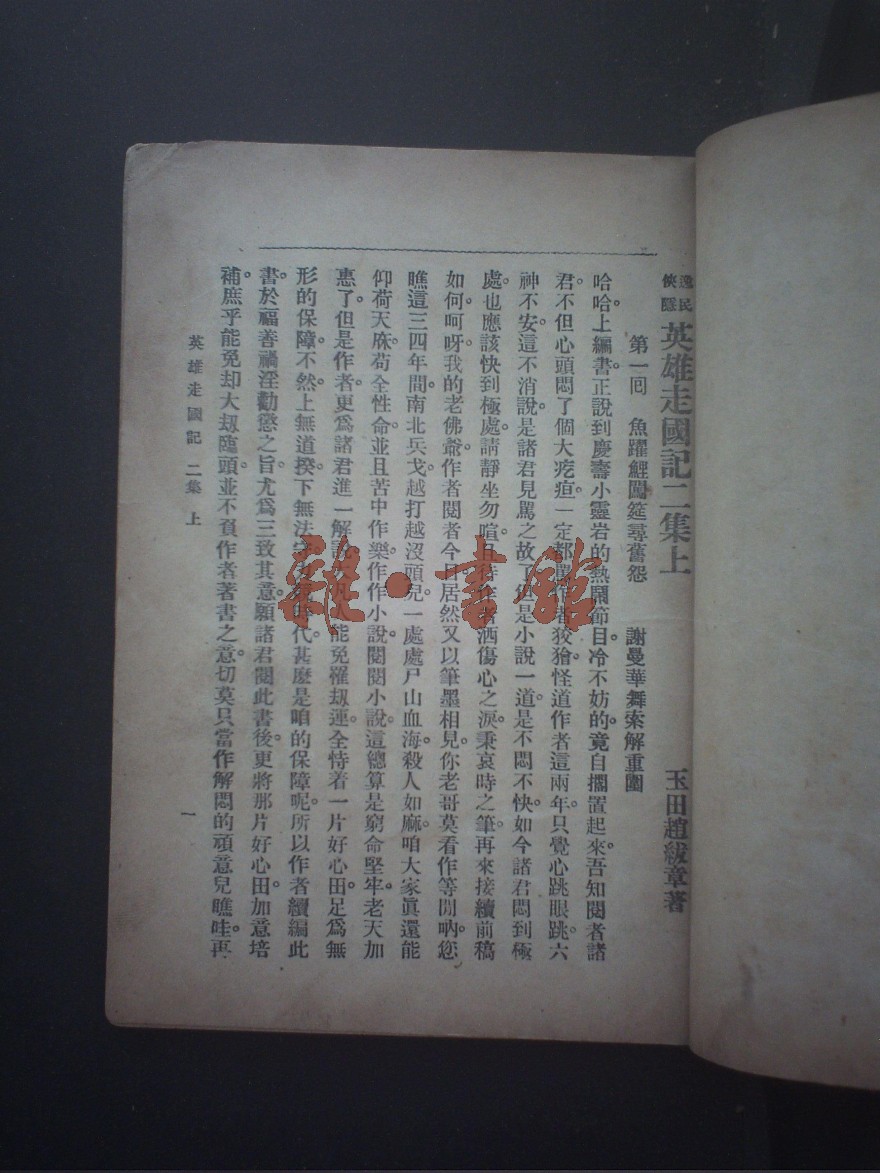 逸民
俠隱
英雄走國記二集上
玉田趙紱章著
第一回 魚躍鯉鬧筵尋舊怨 謝曼華舞索解重圍
哈哈。上編書。正說到慶壽小靈岩的熱鬧節目。冷不妨的。竟自擱置起來。吾知閱者諸
君。不但心頭悶了個大疙疸。一定都罵作者狡獪。怪道作者這兩年。只覺心跳眼跳。六
神不安。這不消說。是諸君見罵之故了。但是小說一道。是不悶不快。如今諸君悶到極
處。也應該快到極處。請靜坐勿喧。且待作者洒傷心之淚。秉哀時之筆。再來接續前稿
如何。呵呀。我的老佛爺。作者閱者今日居然又以筆墨相見。你老哥莫看作等閒吶。您
瞧這三四年間。南北兵戈。越打越沒頭兒。一處處尸山血海。殺人如麻。咱大家眞還能
仰荷天庥。苟全性命。並且苦中作樂。作作小說。閱閱小說。這總算是窮命堅牢。老天加
惠了。但是作者。更爲諸君進一解說。大凡人能免罹刼運。全恃着一片好心田。足爲無
形的保障。不然。上無道揆。下無法守時代。甚麼是咱的保障呢。所以作者續編此
書。於福善禍淫勸懲之旨。尤爲三致其意。願諸君閱此書後。更將那片好心田。加意培
補。庶乎能免却大刼臨頭。並不負作者著書之意。切莫只當作解悶的頑意兒瞧哇。再
英雄走國記 二集 上
一
雜·書館